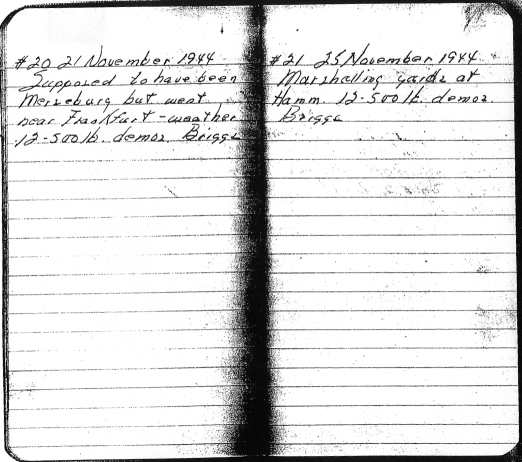 #20 21 November 1944
Supposed to have been
Merseburg but went
near Frankfurt - weather
12-500 lb. demos. Briggs
#21 25 November 1944
Marshalling yards at
Hamm. 12-500 lb. demos.
Briggs